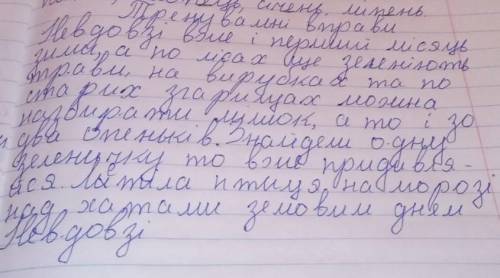 січень, липень.
Тренувальні вправи
Невдовзі вже і перший місяць
зими, а по лісах ще зеленіють
трави, на вирубках та по
старих згарищах можна
назбирати мишок, а то і зо
два опеньків. Знайдеш одну
зеленушку то вже придивля-
йся. Латіла птиця, на морозі
над хатами земовим днем
Невдовзі